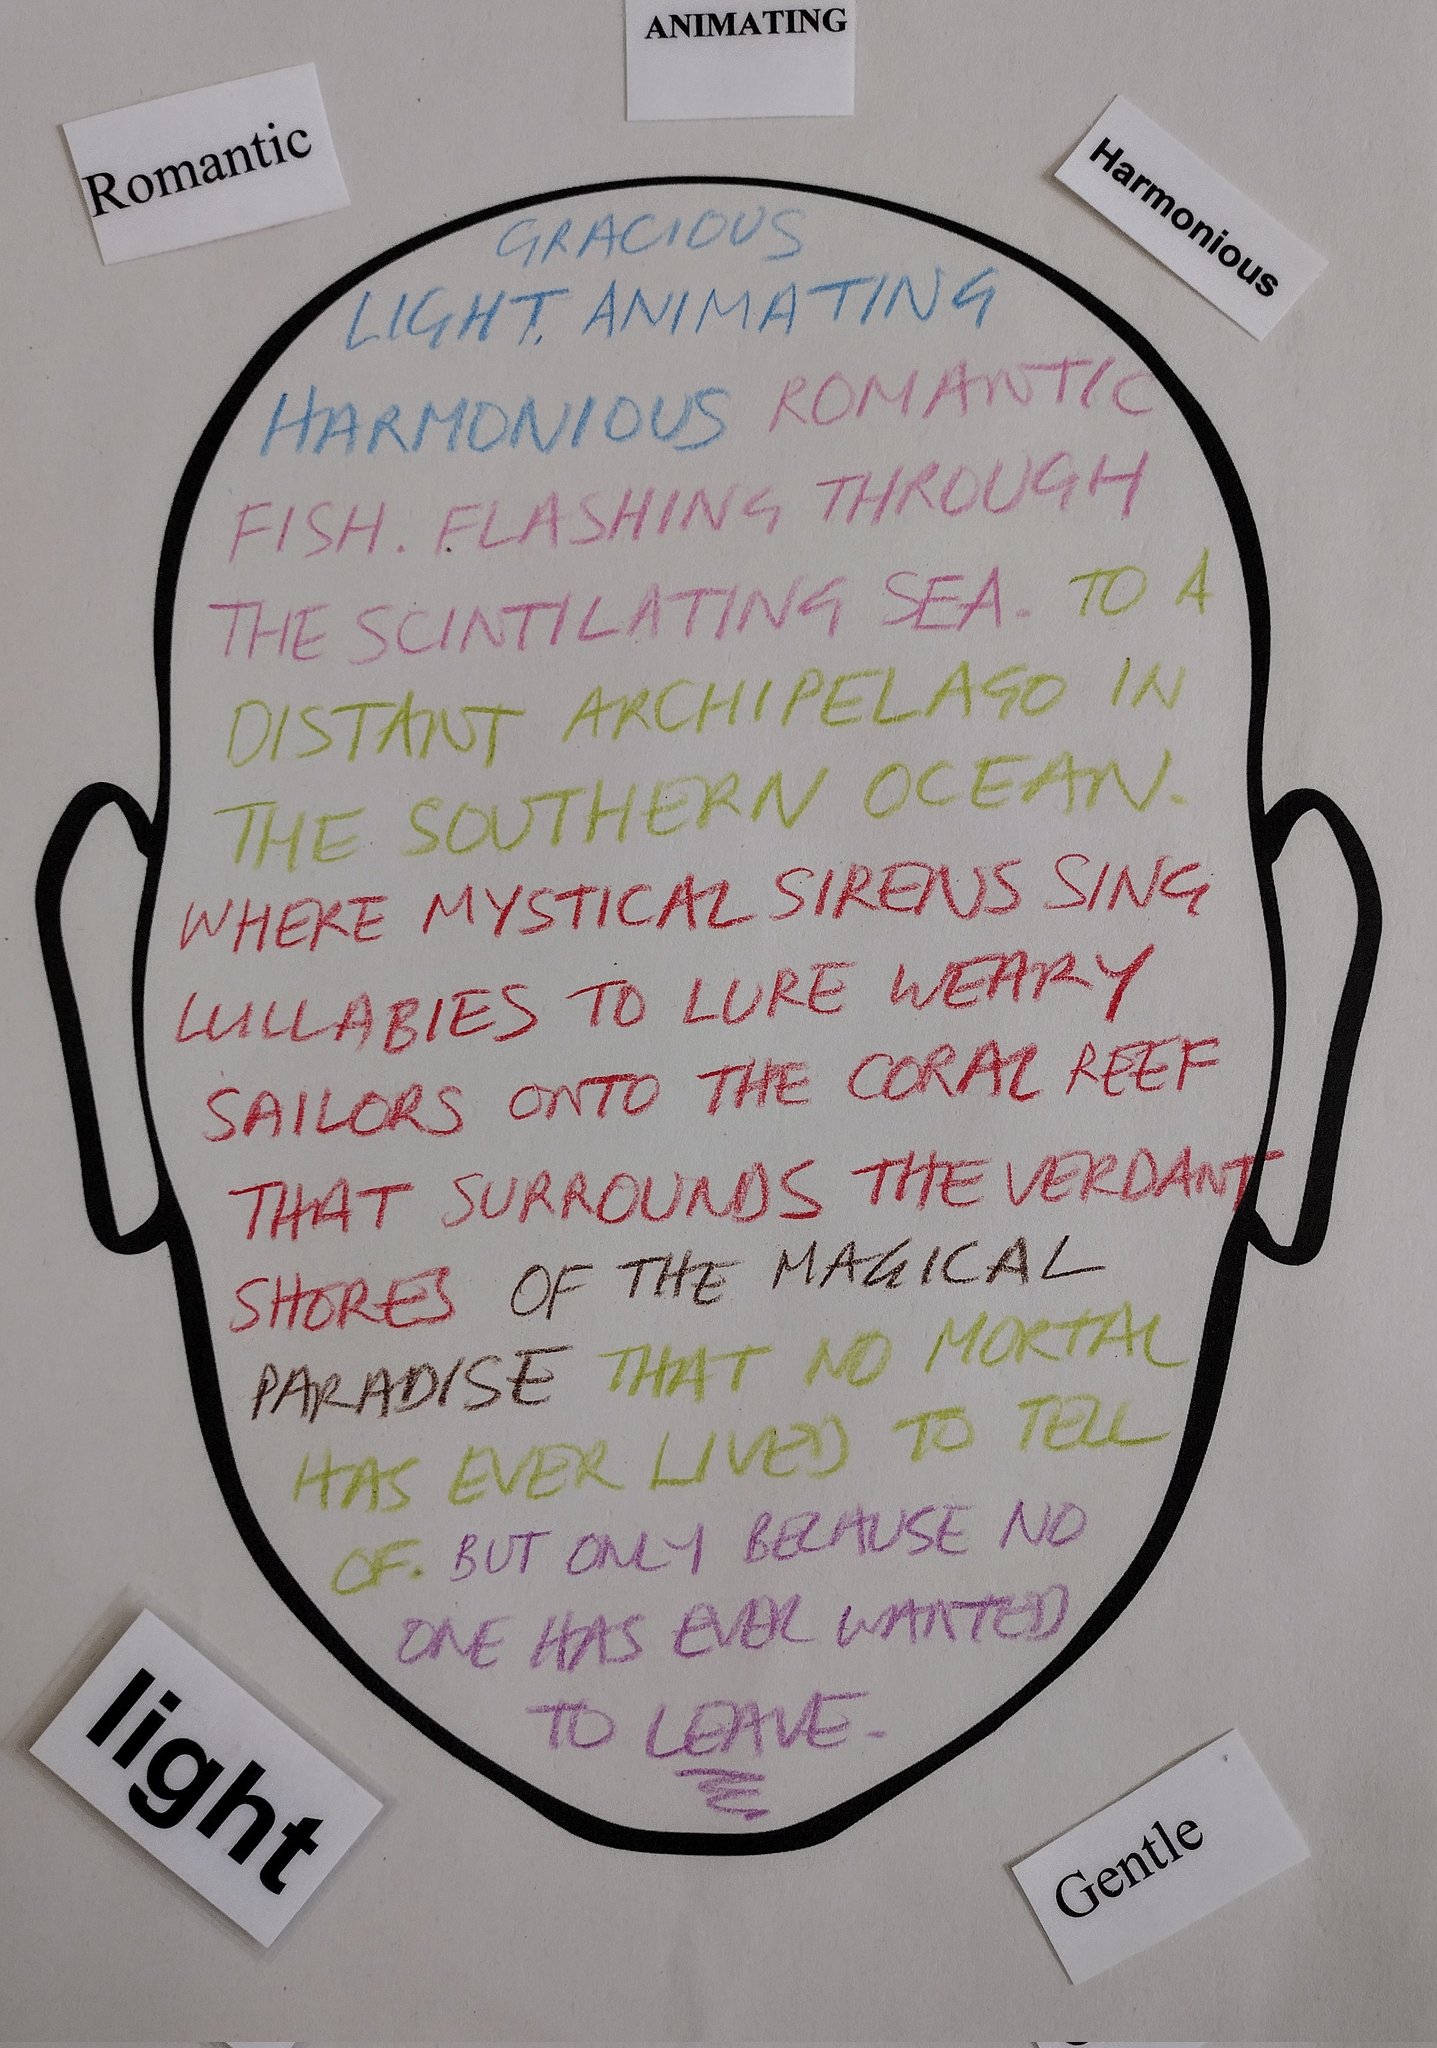 ANIMATING
Romantic
Harmonious
GRACIOUS
LIGHT. ANIMATING
HARMONIOUS ROMANTIC
FISH. FLASHING THROUGH
THE SCINTILATING SEA. TO A
DISTANT ARCHIPELAGO IN
THE SOUTHERN OCEAN.
WHERE MYSTICAL SIRENS SING
LULLABIES TO LURE WEARY
SAILORS ONTO THE CORAL REEF
THAT SURROUNDS THE VERDANT
SHORES OF THE MAGICAL
PARADISE THAT NO MORTAL
HAS EVER LIVED TO TELL
OF. BUT ONLY BECAUSE NO
ONE HAS EVER WANTED
TO LEAVE.
light
Gentle